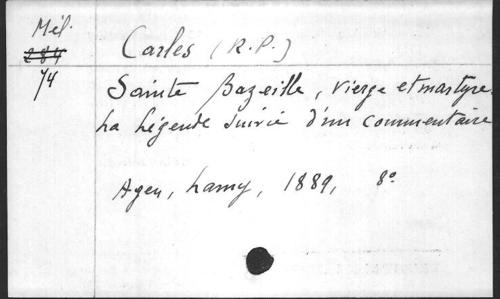 Mél.
284
74
Carles (R.P.)
Sainte Bazeille, vierge et martyre.
La légende suivie d'un commentaire
Agen, Lamy, 1889, 8º